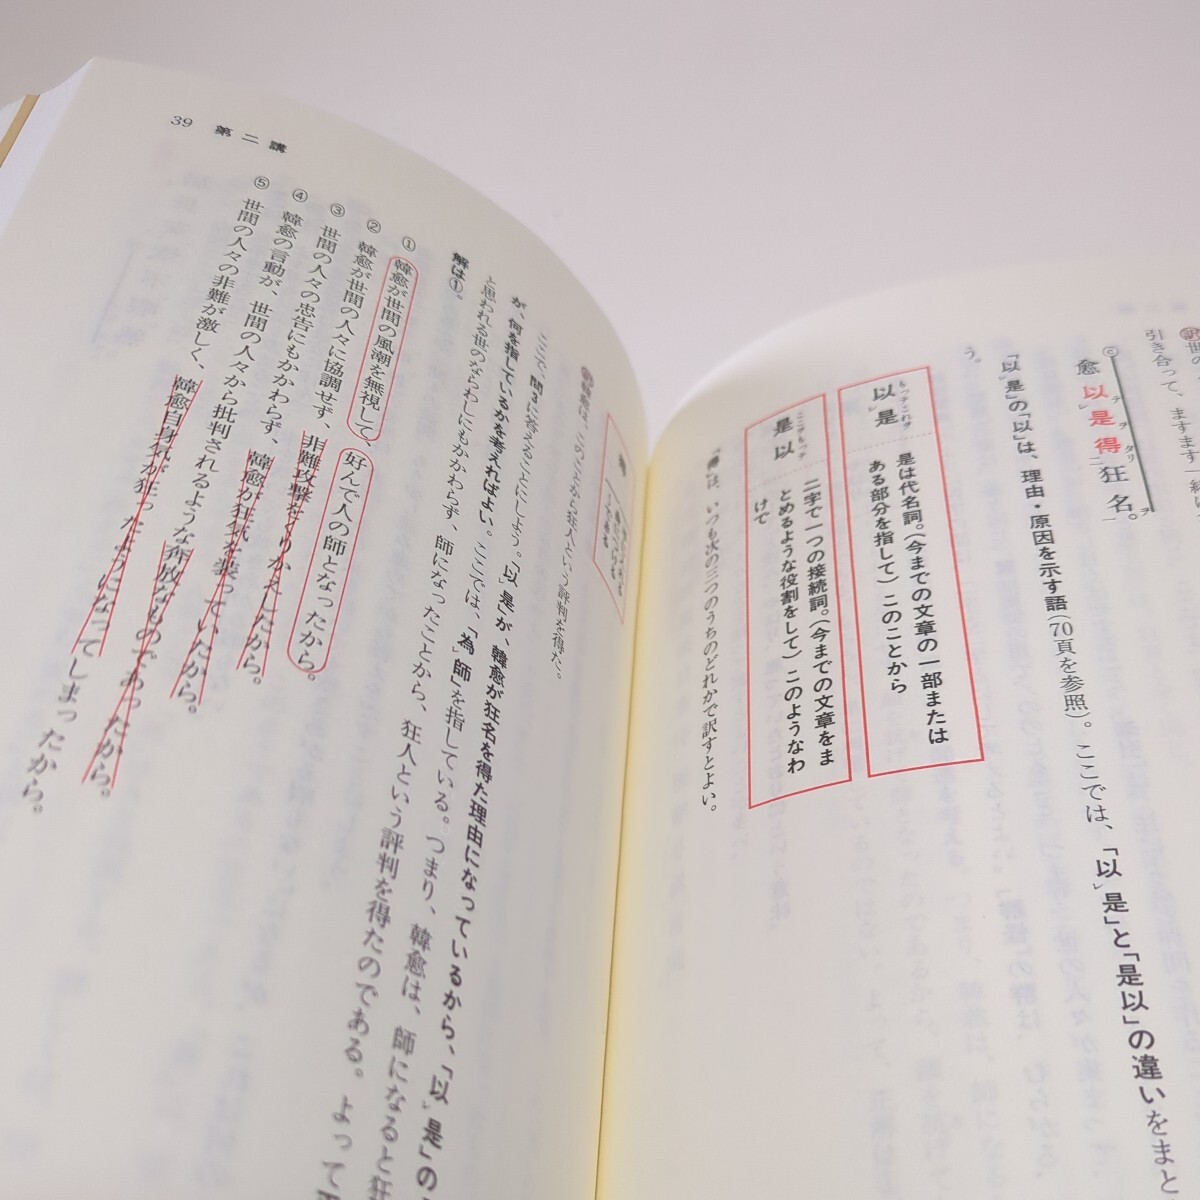 引き合って、ますます
愈以テレ是ヲ得タリ二狂名ヲ一。
「以レ是」の「以」は、理由・原因を示す語(70頁を参照)。ここでは、「以レ是」と「是以」の違いをまと
う。
以レ是 もってこれヲ
是は代名詞。(今までの文章の一部または
ある部分を指して)このことから
是以 ここヲもっテ
二字で一つの接続詞。(今までの文章をま
とめるような役割をして)このようなわ
けで
「得」は、いつも次の三つのうちのどれかで訳すとよい。
39 第二講
このことから狂人という評判を得た。
ここで、問3に答えることにしよう。「以レ是」が、韓愈が狂名を得た理由になっているから、「以レ是」の
が、何を指しているかを考えればよい。ここでは、「為レ師」を指している。つまり、韓愈は、師になると狂
と思われる世のならわしにもかかわらず、師になったことから、狂人という評判を得たのである。よって
解は①。
① 韓愈が世間の風潮を無視して、好んで人の師となったから。
② 韓愈が世間の人々に協調せず、非難攻撃をくりかえしたから。
③ 世間の人々の忠告にもかかわらず、韓愈が狂気を装っていたから。
④ 韓愈の言動が、世間の人々から批判されるような奔放なものであったから。
⑤ 世間の人々の非難が激しく、韓愈自身気が狂ったようになってしまったから。